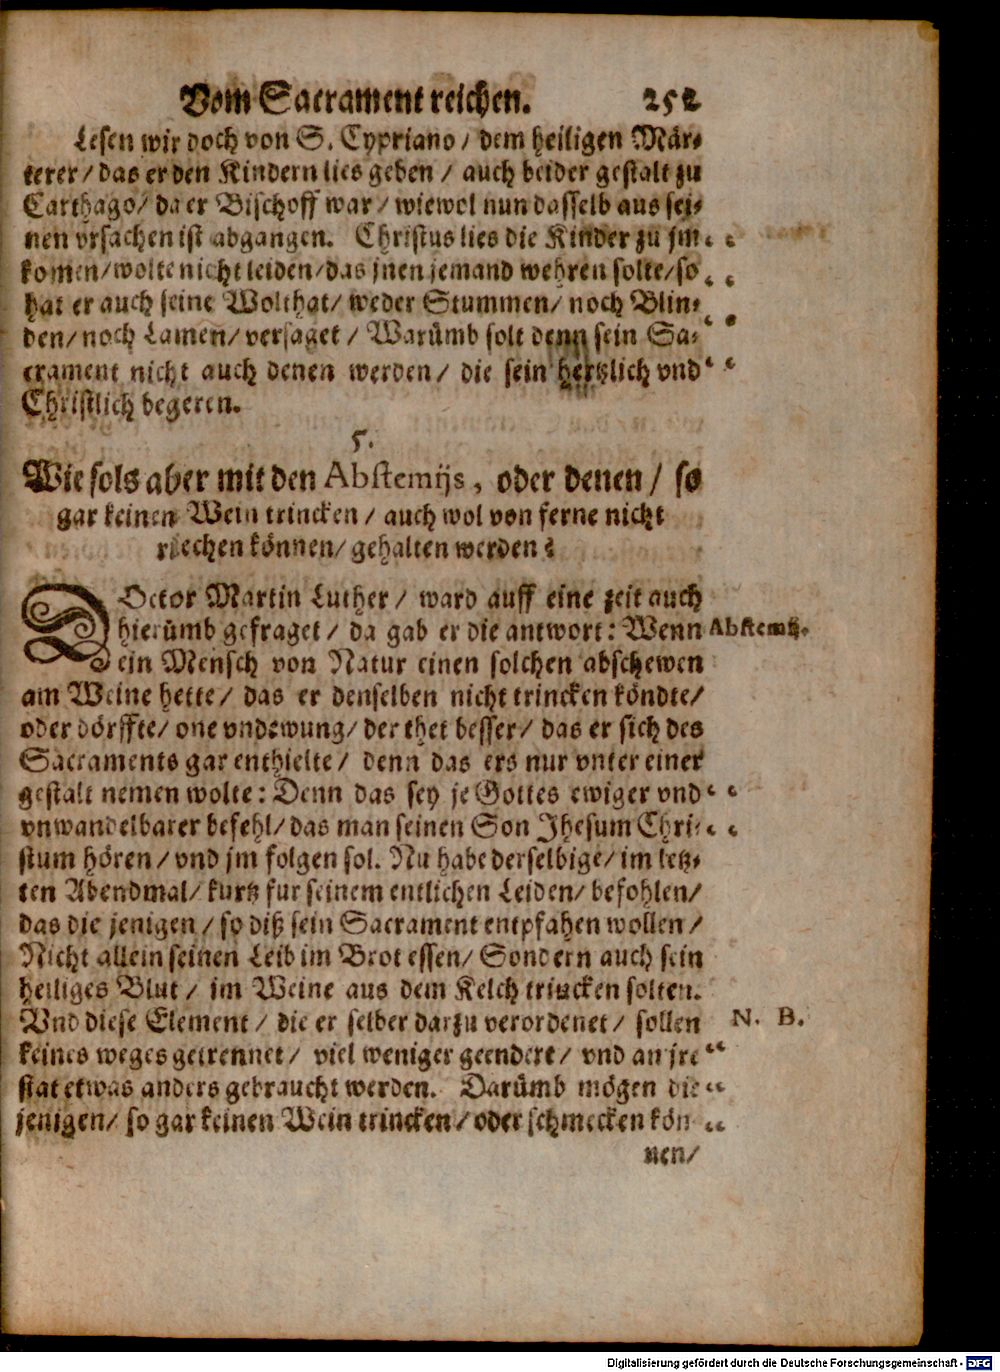 Vom Sacrament reichen. 252
Lesen wir doch von S. Cypriano / dem heiligen Mär⸗
terer / das er den Kindern lies geben / auch beider gestalt zu
Carthago / da er Bischoff war / wiewol nun dasselb aus sei⸗
nen vrsachen ist abgangen. Christus lies die Kinder zu jm
komen / wolte nicht leiden / das jnen jemand wehren solte / so
hat er auch seine Wolthat / weder Stummen / noch Blin⸗
den / noch Lamen / versaget / Warümb solt denn sein Sa⸗
crament nicht auch denen werden / die sein hertzlich vnd
Christlich begeren.
5.
Wie sols aber mit den Abstemijs, oder denen / so
gar keinen Wein trincken / auch wol von ferne nicht
riechen können / gehalten werden?
DOctor Martin Luther / ward auff eine zeit auch
hierümb gefraget / da gab er die antwort: Wenn Abstemij.
ein Mensch von Natur einen solchen abschewen
am Weine hette / das er denselben nicht trincken köndte /
oder dörffte / one vndewung / der thet besser / das er sich des
Sacraments gar enthielte / denn das ers nur vnter einer
gestalt nemen wolte: Denn das sey je Gottes ewiger vnd
vnwandelbarer befehl / das man seinen Son Jhesum Chri⸗
stum hören / vnd jm folgen sol. Nu habe derselbige / im letz⸗
ten Abendmal / kurtz fur seinem entlichen Leiden / befohlen /
das die jenigen / so diß sein Sacrament entpfahen wollen /
Nicht allein seinen Leib im Brot essen / Sondern auch sein
heiliges Blut / im Weine aus dem Kelch trincken solten.
Vnd diese Element / die er selber darzu verordenet / sollen N. B.
keines weges getrennet / viel weniger geendert / vnd an jre
stat etwas anders gebraucht werden. Darümb mögen die
jenigen / so gar keinen Wein trincken / oder schmecken kön
nen /
Digitalisierung gefördert durch die Deutsche Forschungsgemeinschaft - DFG